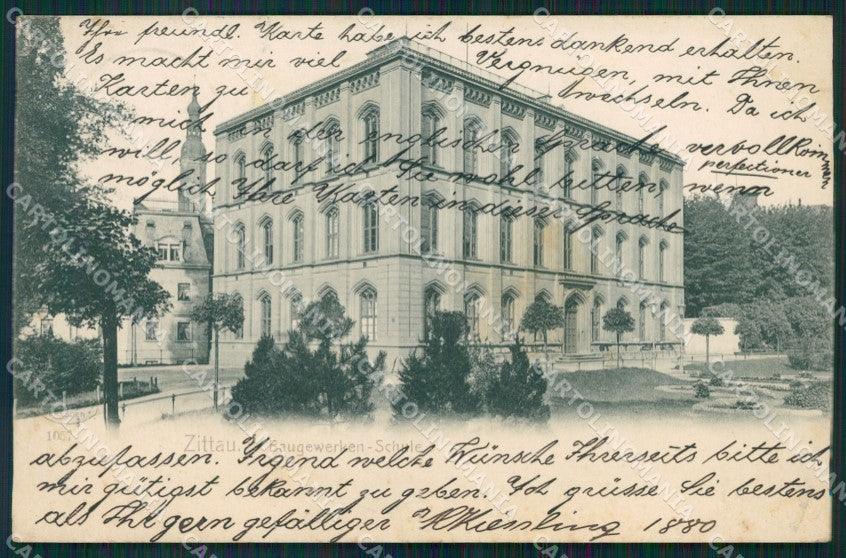 Ihre freundl. Karte habe ich bestens dankend erhalten.
Es macht mir viel Vergnügen, mit Ihnen
Karten zu wechseln. Da ich
mich in der englischen Sprache vervollkommnen
perfectioner
will, so darf ich Sie wohl bitten, wenn
möglich Ihre Karten in dieser Sprache
1007 Zittau. Baugewerken-Schule
abzufassen. Irgend welche Wünsche Ihrerseits bitte ich
mir gütigst bekannt zu geben. Ich grüsse Sie bestens
als Ihr gern gefälliger HKiessling 1880
CARTOLINOMANIA